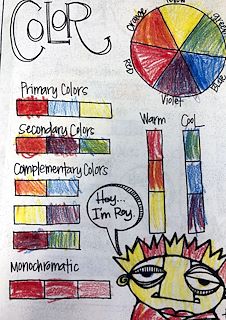 COLOR
Yellow
Orange
green
Red
Blue
Violet
Primary Colors
Secondary Colors
Complementary Colors
Monochromatic
Warm
Cool
Hey...
I'm Roy.